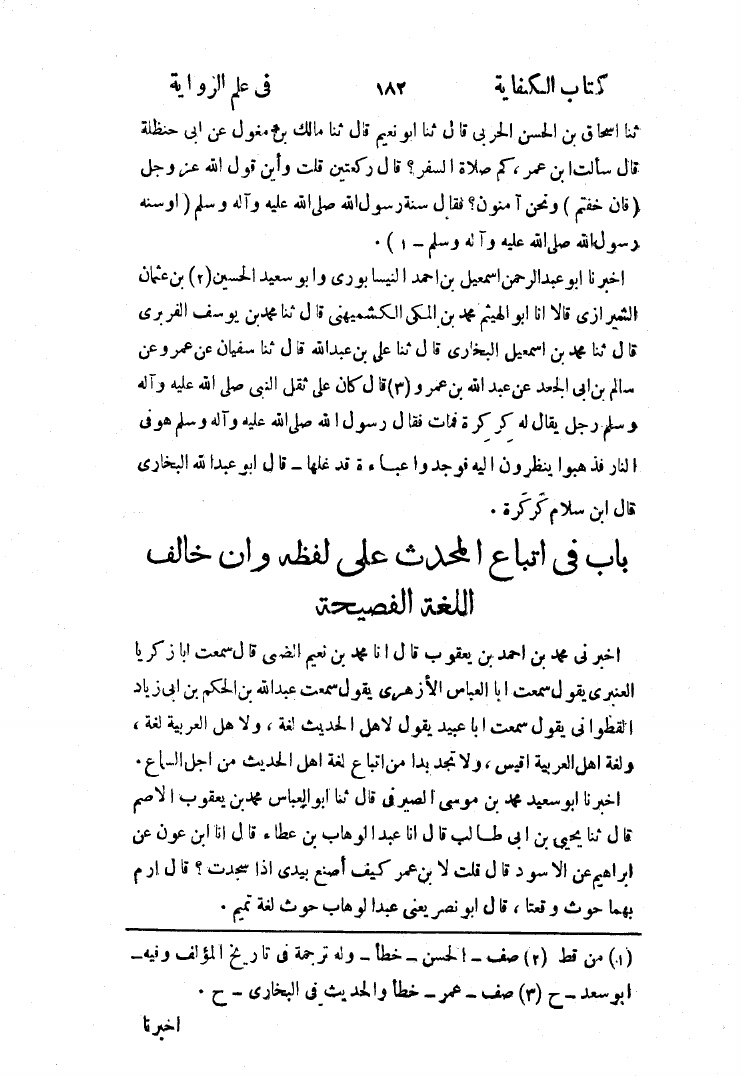 كتاب الكفاية ١٨٢ فى علم الرواية
ثنا اسحاق بن الحسن الحربى قال ثنا ابو نعيم قال ثنا مالك بن مغول عن ابى حنظلة
قال سألت ابن عمر، كم صلاة السفر؟ قال ركعتين قلت وأين قول الله عز وجل
(فان خفتم) ونحن آمنون؟ فقال سنة رسول الله صلى الله عليه وآله وسلم (او سنه
رسول الله صلى الله عليه وآله وسلم ـ ١) ٠
اخبرنا ابو عبدالرحمن اسمعيل بن احمد النيسابورى وابو سعيد الحسين (٢) بن عثمان
الشيرازى قالا انا ابو الهيثم محمد بن المكى الكشميهنى قال ثنا محمد بن يوسف الفربرى
قال ثنا محمد بن اسمعيل البخارى قال ثنا على بن عبدالله قال ثنا سفيان عن عمرو عن
سالم بن ابى الجعد عن عبد الله بن عمرو (٣) قال كان على ثقل النبى صلى الله عليه وآله
وسلم رجل يقال له كِركِرة فمات فقال رسول الله صلى الله عليه وآله وسلم هو فى
النار فذهبوا ينظرون اليه فوجدوا عباءة قد غلها ـ قال ابو عبدالله البخارى
قال ابن سلام كَركَرة ٠
باب فى اتباع المحدث على لفظه وان خالف
اللغة الفصيحة
اخبرنى محمد بن احمد بن يعقوب قال انا محمد بن نعيم الضبى قال سمعت ابا زكريا
العنبرى يقول سمعت ابا العباس الأزهرى يقول سمعت عبدالله بن الحكم بن ابى زياد
القطوانى يقول سمعت ابا عبيد يقول لاهل الحديث لغة، ولاهل العربية لغة،
ولغة اهل العربية اقيس، ولا تجد بدا من اتباع لغة اهل الحديث من اجل السماع ٠
اخبرنا ابو سعيد محمد بن موسى الصيرفى قال ثنا ابو العباس محمد بن يعقوب الاصم
قال ثنا يحيى بن ابى طالب قال انا عبد الوهاب بن عطاء قال انا ابن عون عن
ابراهيم عن الاسود قال قلت لابن عمر كيف أصنع بيدى اذا سجدت؟ قال ارم
بهما حوث وقعتا، قال ابو نصر يعنى عبد الوهاب حوث لغة تميم ٠
(١) من قط (٢) صف ـ الحسن ـ خطأ ـ وله ترجمة فى تاريخ المؤلف وفيه ـ
ابو سعد ـ ح (٣) صف ـ عمر ـ خطأ والحديث فى البخارى ـ ح ٠
اخبرنا